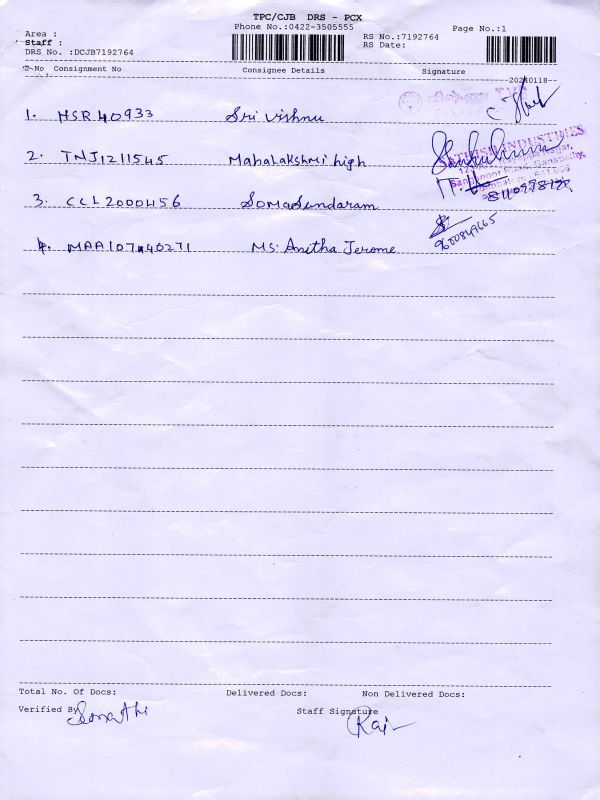 TPC/CJB DRS - PCX
Phone No.:0422-3505555
Page No.:1
Area :
RS No.:7192764
Staff :
RS Date:
DRS No. :DCJB7192764
S-No Consignment No Consignee Details Signature
20240118
1. HSR 40933 Sri Vishnu
2. TNJ1211545 Mahalakshmi high
INDUSTRIES
3. CCL2000456 Somasundaram
4. MAA107040271 Ms. Anitha Jerome
Total No. Of Docs: Delivered Docs: Non Delivered Docs:
Verified By Staff Signature